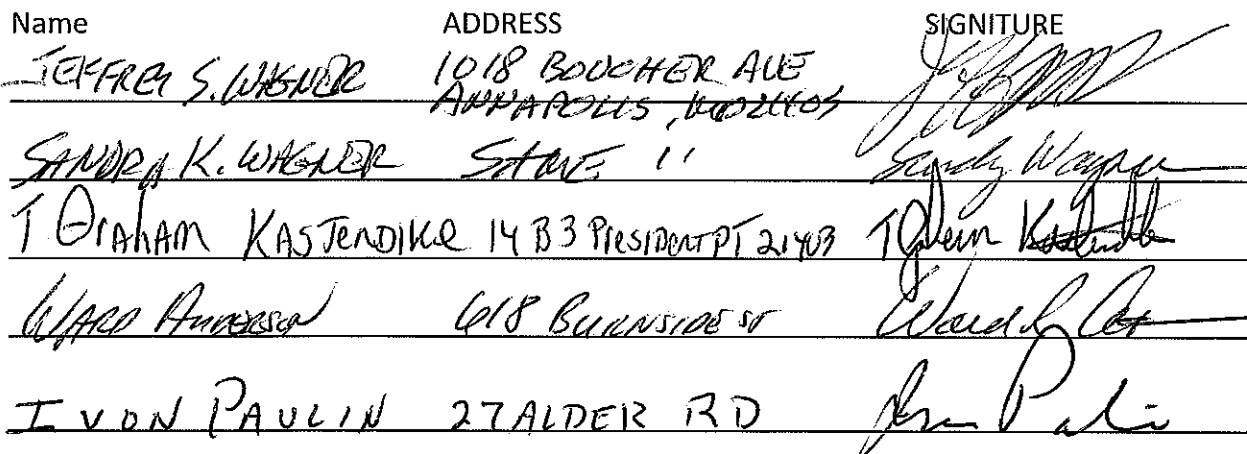 Name ADDRESS SIGNITURE
JEFFREY S. WAGNER 1018 BOUCHER AVE
ANNAPOLIS, MD 21403
SANDRA K. WAGNER SAME " Sandy Wagner
T GraHAM KASTENDIKE 14 B3 PRESIDENT PT 21403 T Graham Kastendike
WARD ANDERSON 618 BURNSIDE ST
IVON PAULIN 27 ALDER RD